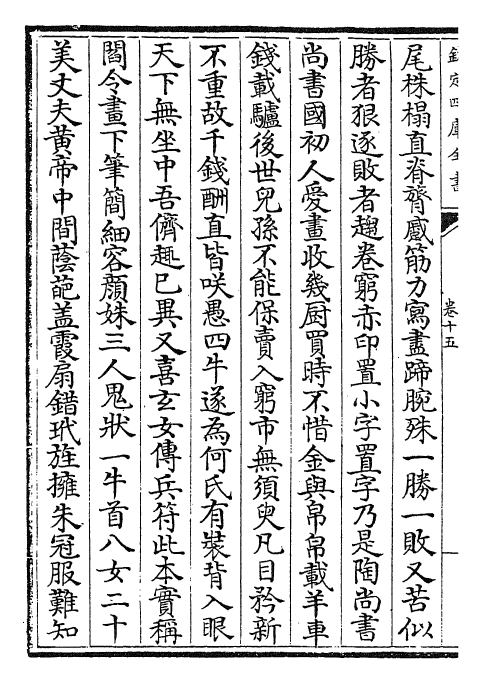 欽定四庫全書
卷十五
尾株榻直脊膂蹙筋力寫盡蹄腕殊一勝一敗又苦似
勝者狠逐敗者趨卷窮赤印置小字置字乃是陶尚書
尚書國初人愛畫收幾厨買時不惜金與帛帛載羊車
錢載驢後世兒孫不能保賣入窮市無須臾凡目矜新
不重故千錢酬直皆咲愚四牛遂為何氏有裝背入眼
天下無坐中吾儕趣已異又喜玄女傳兵符此本實稱
閻令畫下筆簡細容顔姝三人鬼狀一牛首八女二十
美丈夫黄帝中間蔭葩盖霞扇錯玳旌擁朱冠服難知